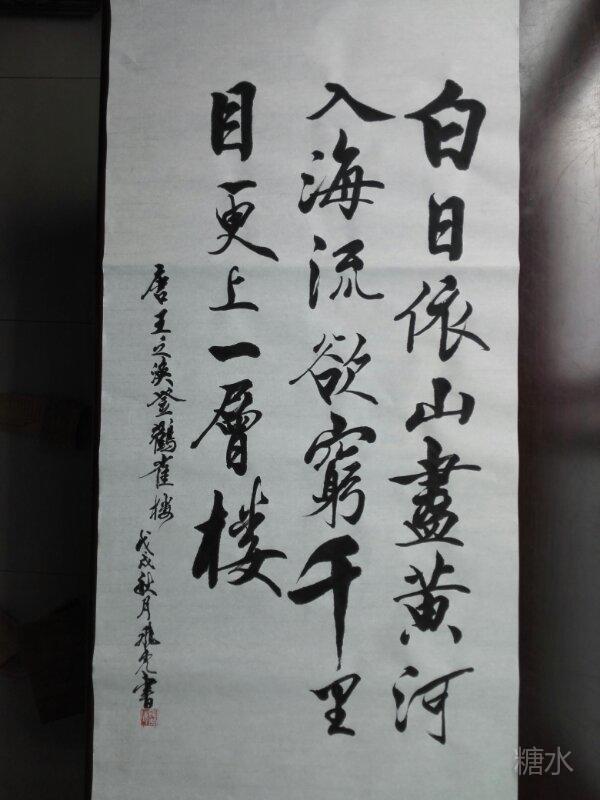 白日依山盡黄河
入海流欲窮千里
目更上一層楼
唐王之渙登鸛雀楼
戊戌秋月 書
糖水